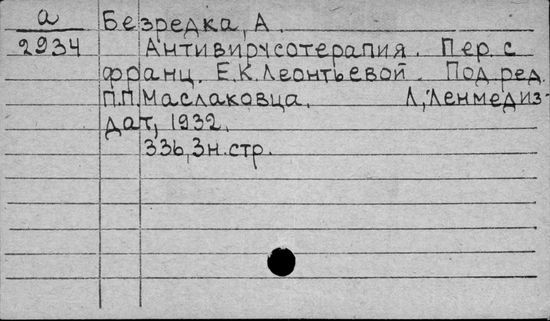 а Безредка, А.
2934 Антивирусотерапия. Пер. с
франц. Е.К.Леонтьевой. Под ред.
П.П.Маслаковца. Л, "Ленмедиз-
дат, 1932.
336, 3н.стр.